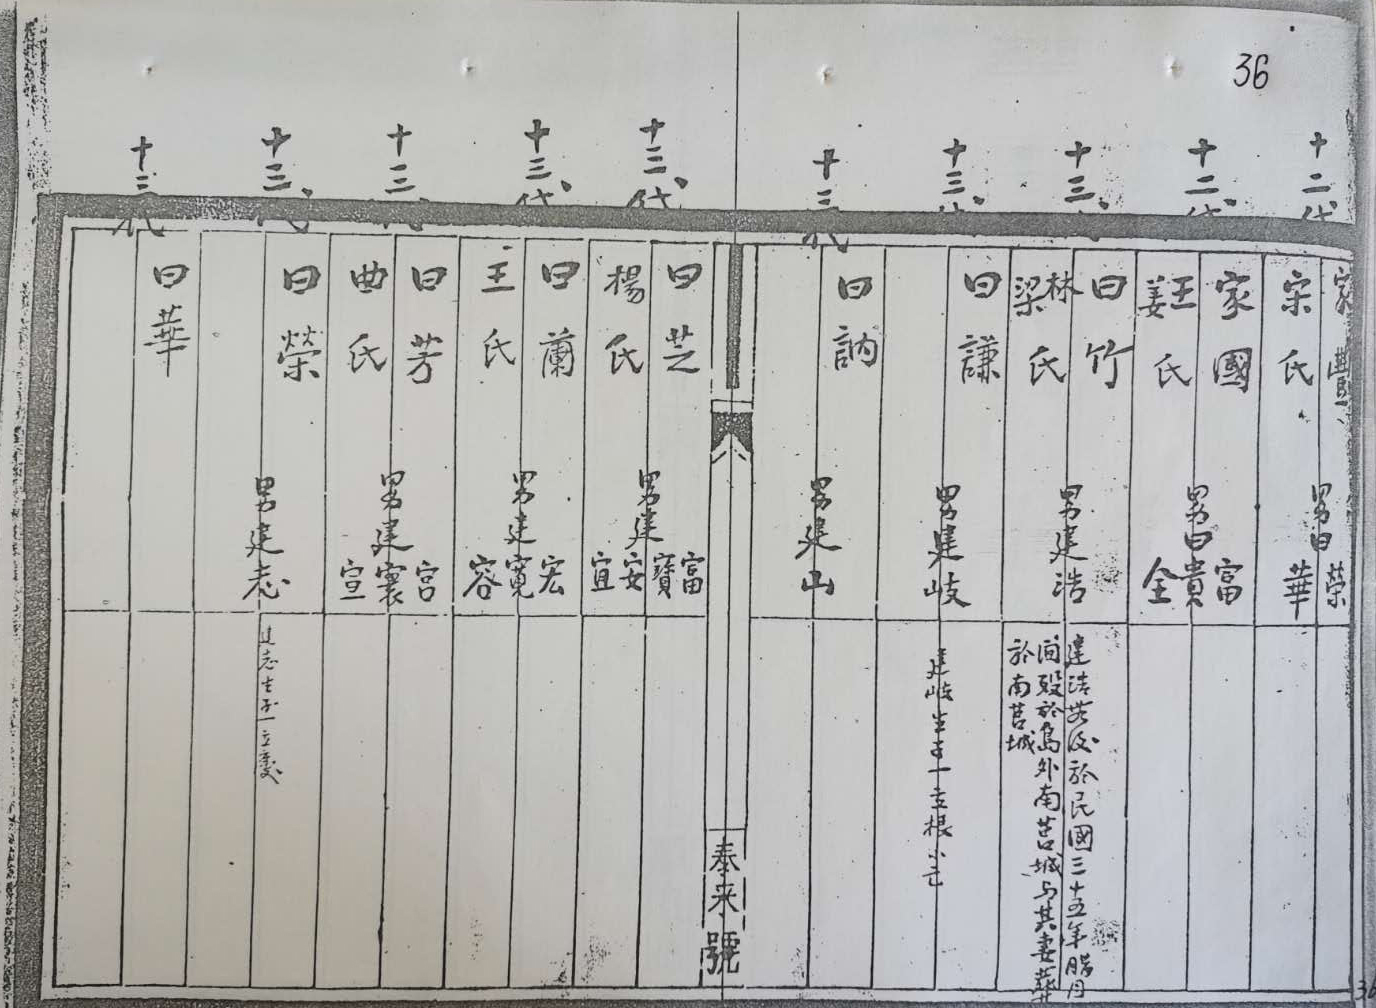 36
十二代
家豐
宋氏
男曰榮華
十二代
家國
王姜氏
男曰富貴全
十三代
曰竹
林梁氏
男建浩
於民國三十五年腊月
间殁於島外南莒城与其妻葬
於南莒城
十三代
曰謙
男建岐
建岐生子一立根
十三代
曰訥
男建山
泰来號
十三代
曰芝
楊氏
男建富寶安宜
十三代
曰蘭
王氏
男建宏寬容
十三代
曰芳
曲氏
男建宫寰宣
十三代
曰榮
男建志
建志生子一立慶
十三代
曰華